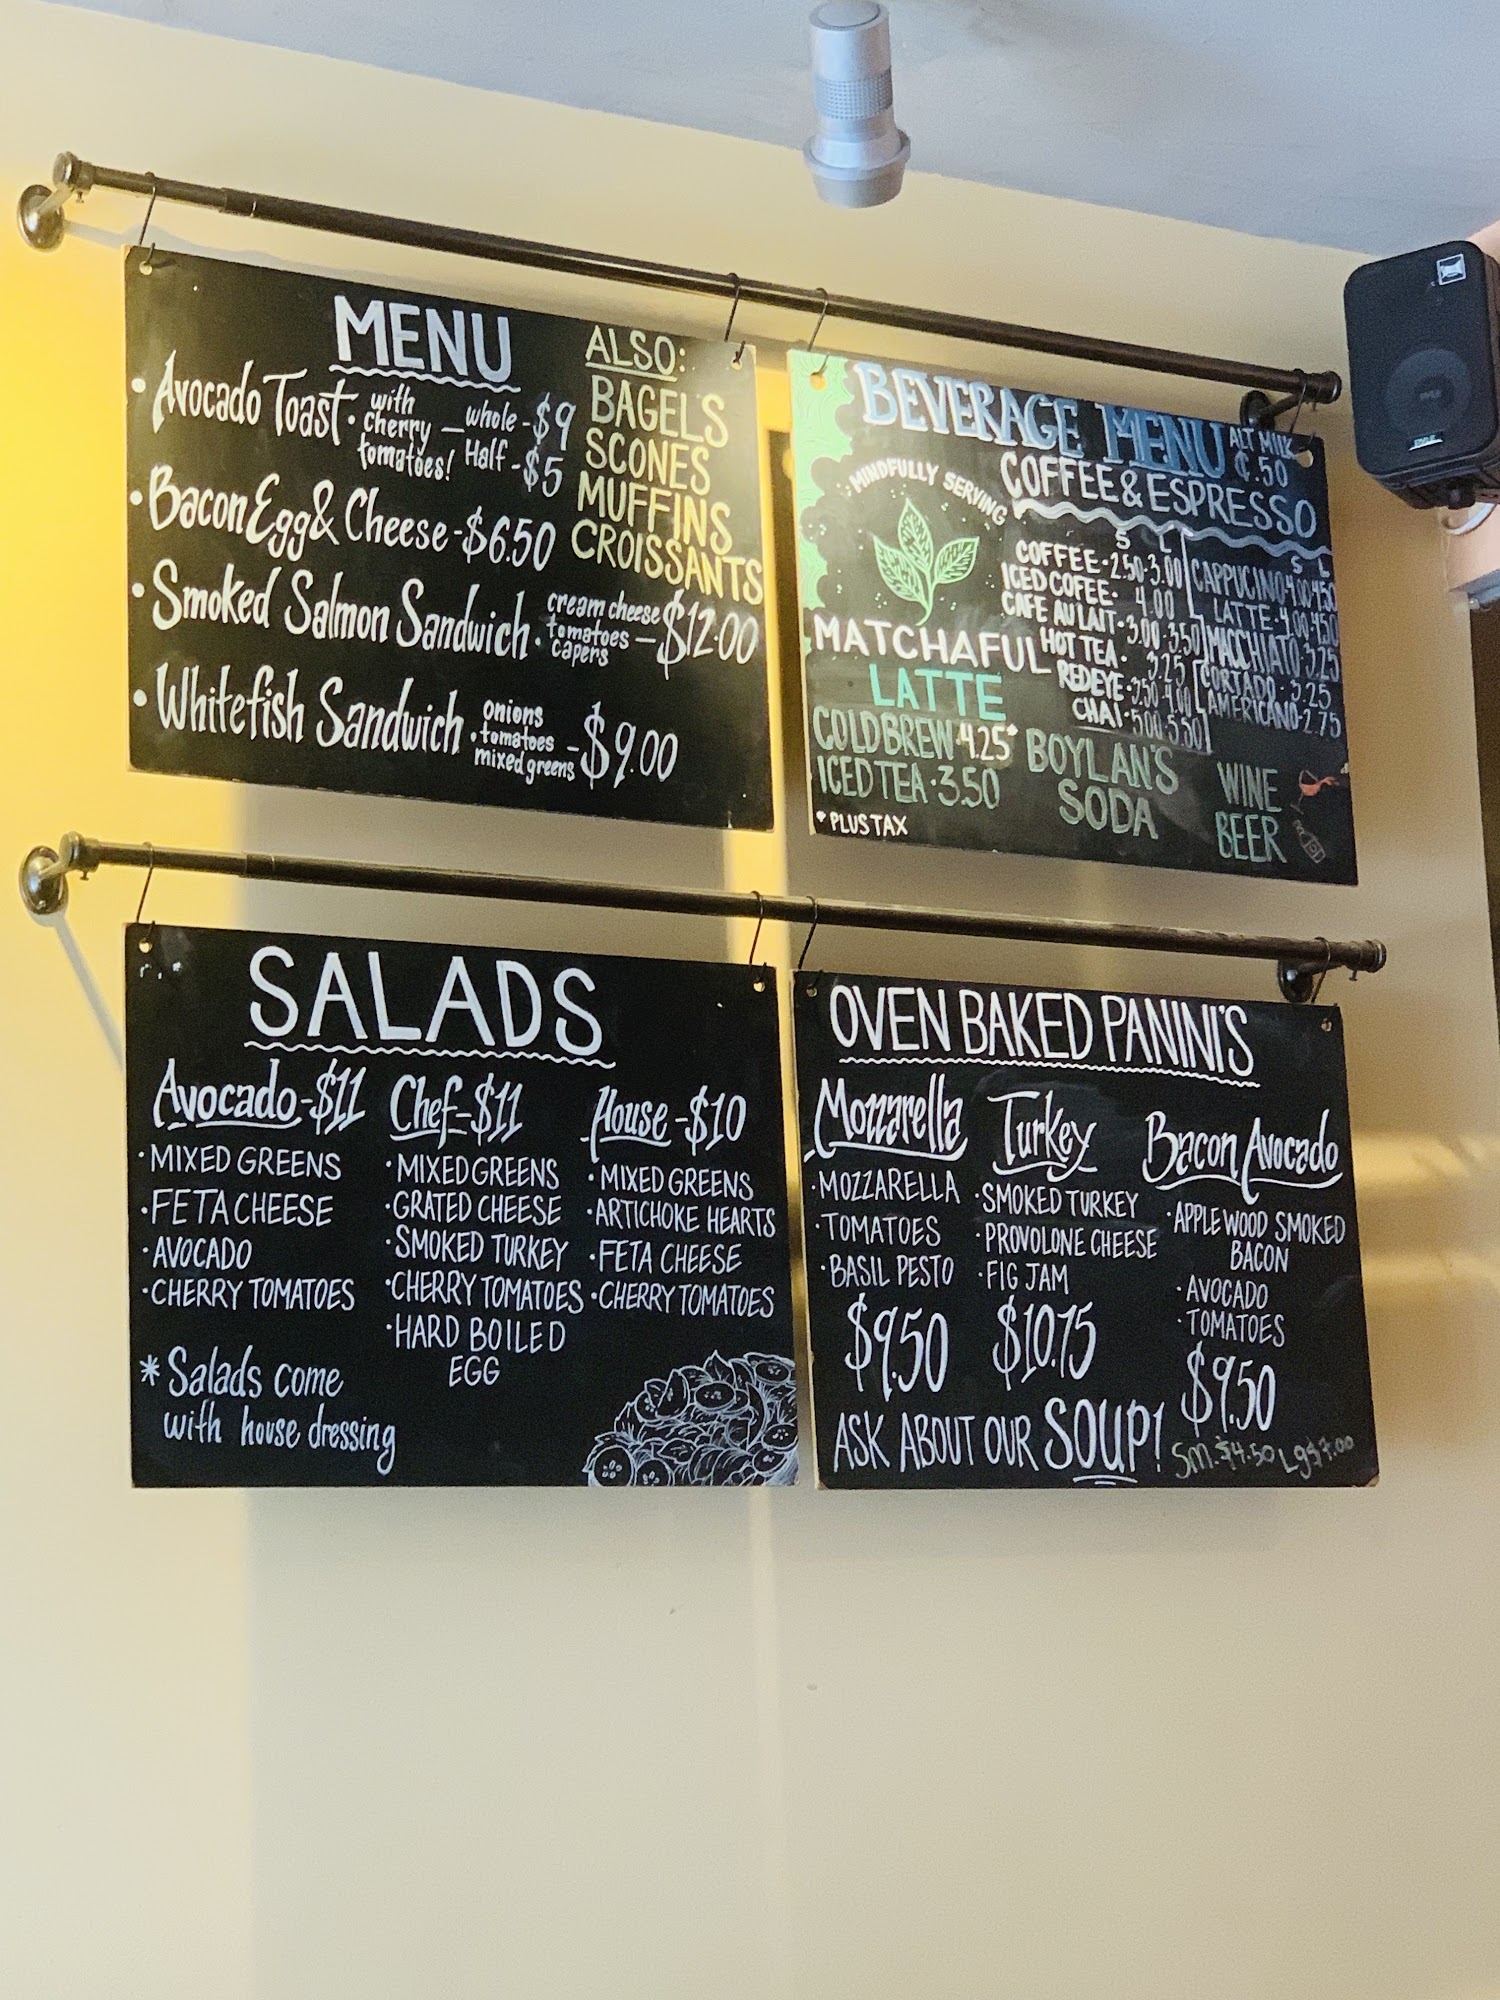 MENU
• Avocado Toast • with cherry tomatoes! — whole - $9
Half - $5
• Bacon Egg & Cheese - $6.50
• Smoked Salmon Sandwich • cream cheese tomatoes capers — $12.00
• Whitefish Sandwich • onions tomatoes mixed greens - $9.00
ALSO:
BAGELS
SCONES
MUFFINS
CROISSANTS
BEVERAGE MENU
ALT MILK
¢.50
MINDFULLY SERVING
MATCHAFUL
LATTE
COLD BREW 4.25*
ICED TEA • 3.50
* PLUS TAX
COFFEE & ESPRESSO
S L
COFFEE • 2.50 - 3.00
ICED COFEE • 4.00
CAFE AU LAIT • 3.00 - 3.50
HOT TEA • 3.25
REDEYE • 3.50 - 4.00
CHAI • 5.00 - 5.50
S L
CAPPUCINO 4.00 4.50
LATTE • 4.00 4.50
MACCHIATO • 3.25
CORTADO • 3.25
AMERICANO • 2.75
BOYLAN'S
SODA
WINE
BEER
SALADS
Avocado - $11
• MIXED GREENS
• FETA CHEESE
• AVOCADO
• CHERRY TOMATOES
Chef - $11
• MIXED GREENS
• GRATED CHEESE
• SMOKED TURKEY
• CHERRY TOMATOES
• HARD BOILED
EGG
House - $10
• MIXED GREENS
• ARTICHOKE HEARTS
• FETA CHEESE
• CHERRY TOMATOES
* Salads come
with house dressing
OVEN BAKED PANINI'S
Mozzarella
• MOZZARELLA
• TOMATOES
• BASIL PESTO
$9.50
Turkey
• SMOKED TURKEY
• PROVOLONE CHEESE
• FIG JAM
$10.75
Bacon Avocado
• APPLEWOOD SMOKED
BACON
• AVOCADO
• TOMATOES
$9.50
ASK ABOUT OUR SOUP!
Sm. $4.50 Lg $7.00